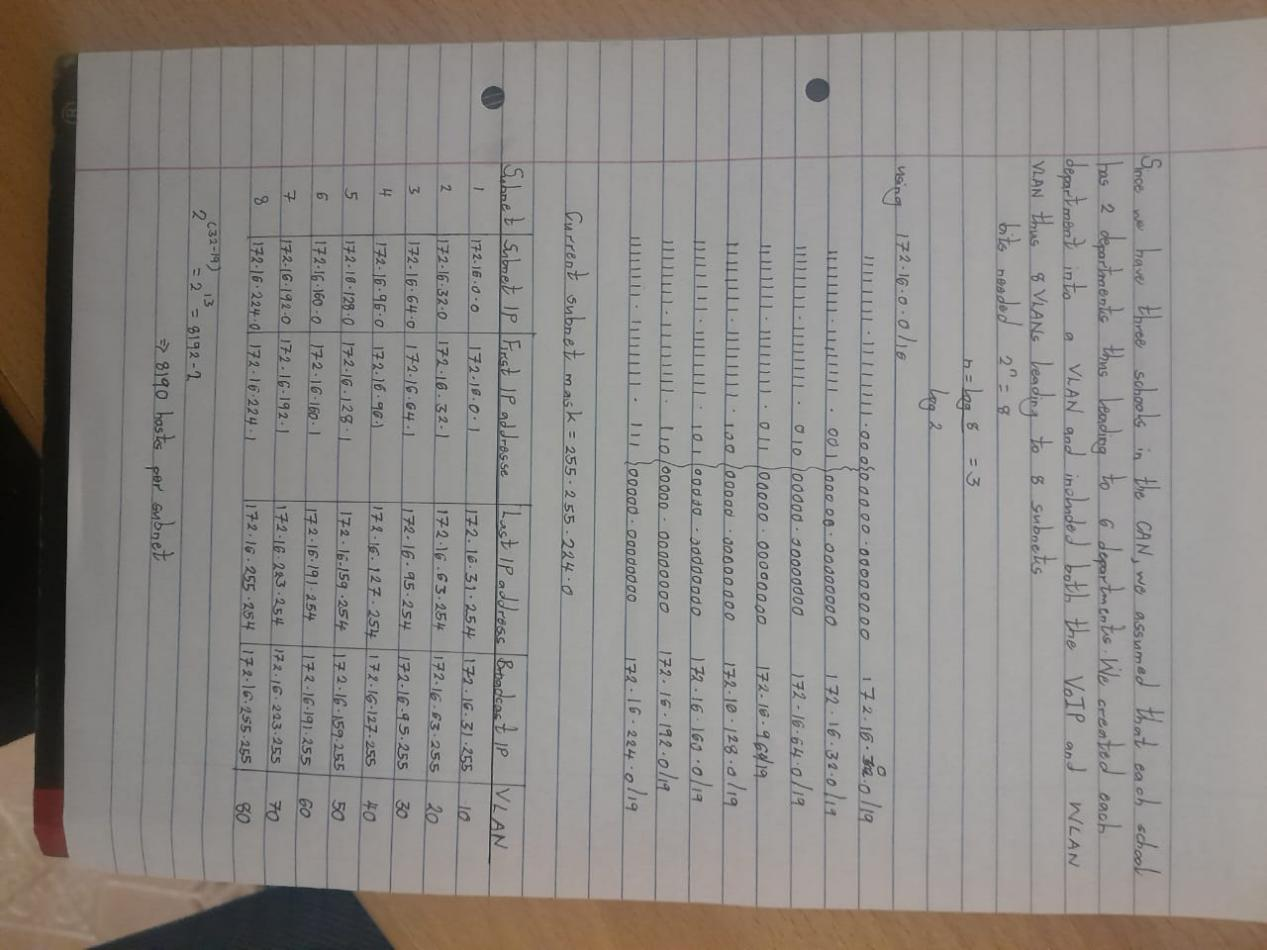 Since we have three schools in the CAN, we assumed that each school
has 2 departments thus leading to 6 departments. We created each
department into a VLAN and included both the VoIP and WLAN
VLAN thus 8 VLANs leading to 8 subnets
bits needed 2ⁿ = 8
n = log 8 / log 2 = 3
using 172.16.0.0/16
11111111.11111111.000}00000.00000000 172.16.0.0/19
11111111.11111111.001}00000.00000000 172.16.32.0/19
11111111.11111111.010}00000.00000000 172.16.64.0/19
11111111.11111111.011}00000.00000000 172.16.96/19
11111111.11111111.100}00000.00000000 172.16.128.0/19
11111111.11111111.101}00000.00000000 172.16.160.0/19
11111111.11111111.110}00000.00000000 172.16.192.0/19
11111111.11111111.111}00000.00000000 172.16.224.0/19
Current subnet mask = 255.255.224.0
Subnet Subnet IP First IP addresse Last IP address Broadcast IP VLAN
1 172.16.0.0 172.16.0.1 172.16.31.254 172.16.31.255 10
2 172.16.32.0 172.16.32.1 172.16.63.254 172.16.63.255 20
3 172.16.64.0 172.16.64.1 172.16.95.254 172.16.95.255 30
4 172.16.96.0 172.16.96.1 172.16.127.254 172.16.127.255 40
5 172.16.128.0 172.16.128.1 172.16.159.254 172.16.159.255 50
6 172.16.160.0 172.16.160.1 172.16.191.254 172.16.191.255 60
7 172.16.192.0 172.16.192.1 172.16.223.254 172.16.223.255 70
8 172.16.224.0 172.16.224.1 172.16.255.254 172.16.255.255 80
2⁽³²⁻¹⁹⁾ = 2¹³ = 8192-2
⇒ 8190 hosts per subnet